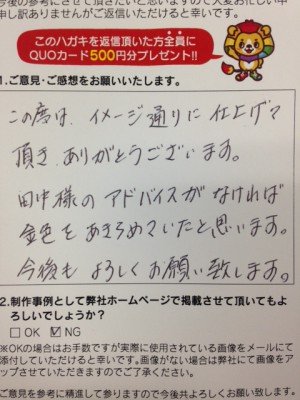 今後の参考にさせて頂きたいと思いますので大変お忙しい中
申し訳ありませんがご返信いただけると幸いです。
このハガキを返信頂いた方全員に
QUOカード500円分プレゼント!!
1.ご意見・ご感想をお願いいたします。
この度は、イメージ通りに仕上げて
頂き、ありがとうございます。
田中様のアドバイスがなければ
金色をあきらめていたと思います。
今後もよろしくお願い致します。
2.制作事例として弊社ホームページで掲載させて頂いてもよ
ろしいでしょうか?
□OK ☑NG
※OKの場合はお手数ですが実際に使用されている画像をメールにて
添付していただけると幸いです。画像がない場合は弊社にて画像をア
ップさせていただきますのでご了承ください。
ご意見を参考に精進して参りますので今後共よろしくお願い致します。